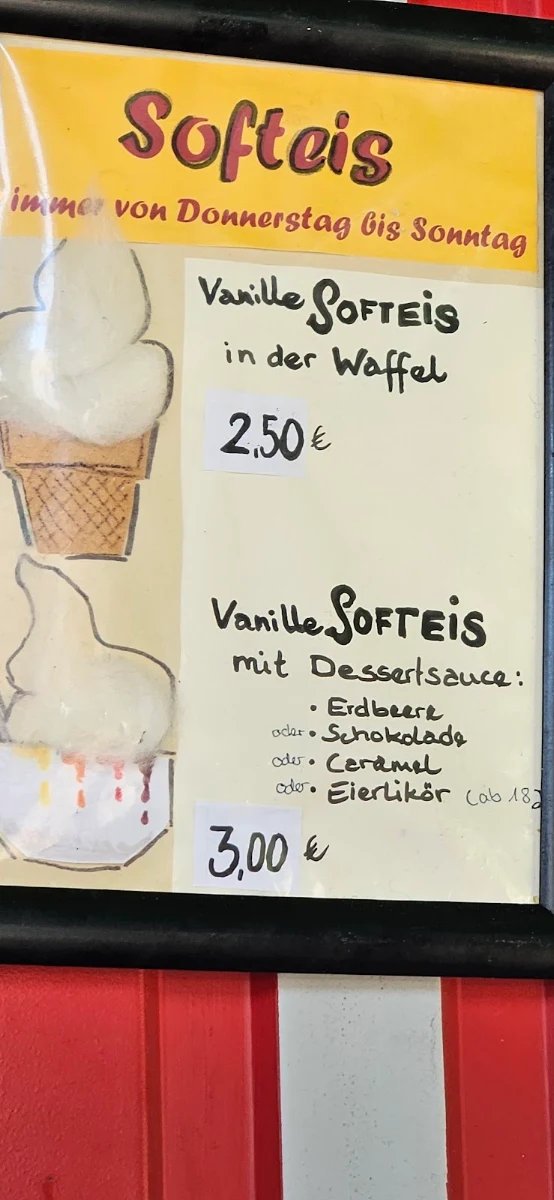 Softeis
immer von Donnerstag bis Sonntag
Vanille SOFTEiS
in der Waffel
2,50 €
Vanille SOFTEiS
mit Dessertsauce:
• Erdbeere
oder • Schokolade
oder • Caramel
oder • Eierlikör (ab 18)
3,00 €